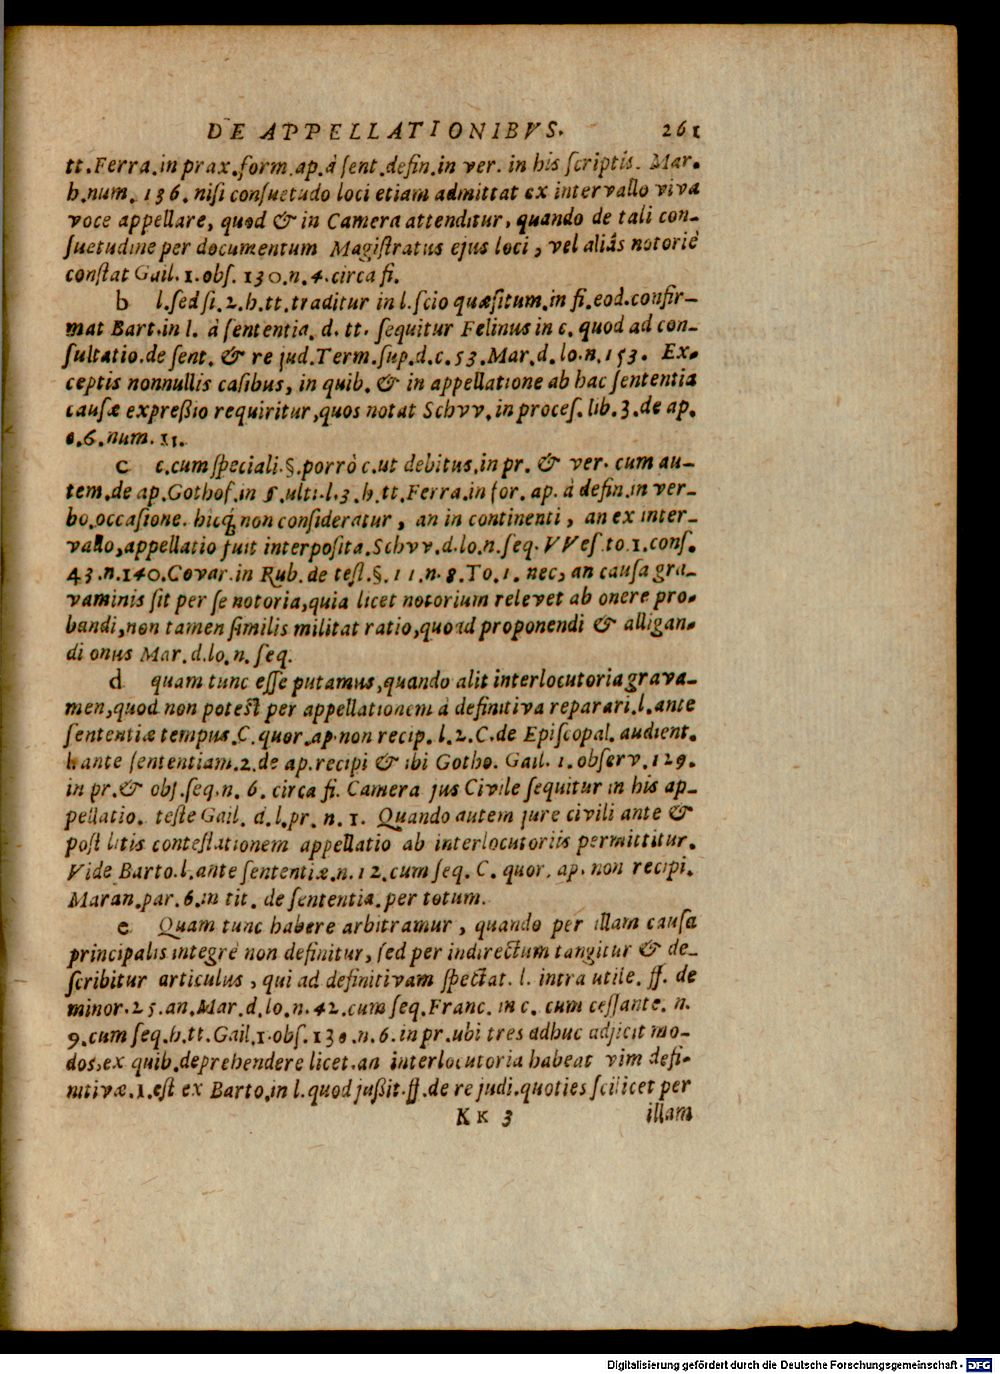 DE APPELLATIONIBVS. 261
tt.Ferra.in prax.form.ap.à ſent.defin.in ver. in his ſcriptis. Mar.
h.num. 136. niſi conſuetudo loci etiam admittat ex intervallo viva
voce appellare, quod & in Camera attenditur, quando de tali con-
ſuetudine per documentum Magiſtratus ejus loci, vel aliâs notoriè
conſtat Gail. 1. obſ. 130. n. 4. circa fi.
b l.ſed ſi. 2. h.tt.traditur in l.ſcio quæſitum.in fi.eod.confir-
mat Bart.in l. à ſententia. d. tt. ſequitur Felinus in c. quod ad con-
ſultatio.de ſent. & re jud.Term.ſup.d.c.53.Mar.d.lo.n.153. Ex-
ceptis nonnullis caſibus, in quib. & in appellatione ab hac ſententia
cauſæ expreßio requiritur, quos notat Schvv. in proceſ. lib. 3. de ap.
c.6. num. 11.
c c.cum ſpeciali.§.porrò c.ut debitus.in pr. & ver. cum au-
tem.de ap.Gothof.in §.ulti.l.3.h.tt.Ferra.in for. ap. à defin.in ver-
bo.occaſione. hicq́; non conſideratur, an in continenti, an ex inter-
vallo, appellatio fuit interpoſita.Schvv.d.lo.n.ſeq. VVeſ.to.1.conſ.
43.n.140.Covar.in Rub.de teſt.§.11.n.8.To.1. nec, an cauſa gra-
vaminis ſit per ſe notoria, quia licet notorium relevet ab onere pro-
bandi, non tamen ſimilis militat ratio, quoad proponendi & alligan-
di onus Mar.d.lo.n. ſeq.
d quam tunc eſſe putamus, quando alit interlocutoria grava-
men, quod non poteſt per appellationem à definitiva reparari.l.ante
ſententiæ tempus.C.quor.ap.non recip. l.2.C.de Epiſcopal. audient.
l.ante ſententiam.2.de ap.recipi & ibi Gotho. Gail. 1. obſerv. 129.
in pr.& obſ.ſeq.n. 6. circa fi. Camera jus Civile ſequitur in his ap-
pellatio. teſte Gail. d.l.pr. n. 1. Quando autem jure civili ante &
poſt litis conteſtationem appellatio ab interlocutoriis permittitur.
Vide Barto.l.ante ſententiæ.n.12.cum ſeq. C. quor. ap. non recipi.
Maran.par.6.in tit. de ſententia.per totum.
e Quam tunc habere arbitramur, quando per illam cauſa
principalis integrè non definitur, ſed per indirectum tangitur & de-
ſcribitur articulus, qui ad definitivam ſpectat. l. intra utile. ff. de
minor.25.an.Mar.d.lo.n.42.cum ſeq.Franc. in c. cum ceſſante. n.
9.cum ſeq.h.tt.Gail.1.obſ.130.n.6.in pr.ubi tres adhuc adjicit mo-
dos, ex quib.deprehendere licet.an interlocutoria habeat vim defi-
nitivæ.1.eſt ex Barto.in l.quod jußit.ff.de re judi.quoties ſcilicet per
Kk 3 illam
Digitalisierung gefördert durch die Deutsche Forschungsgemeinschaft - DFG